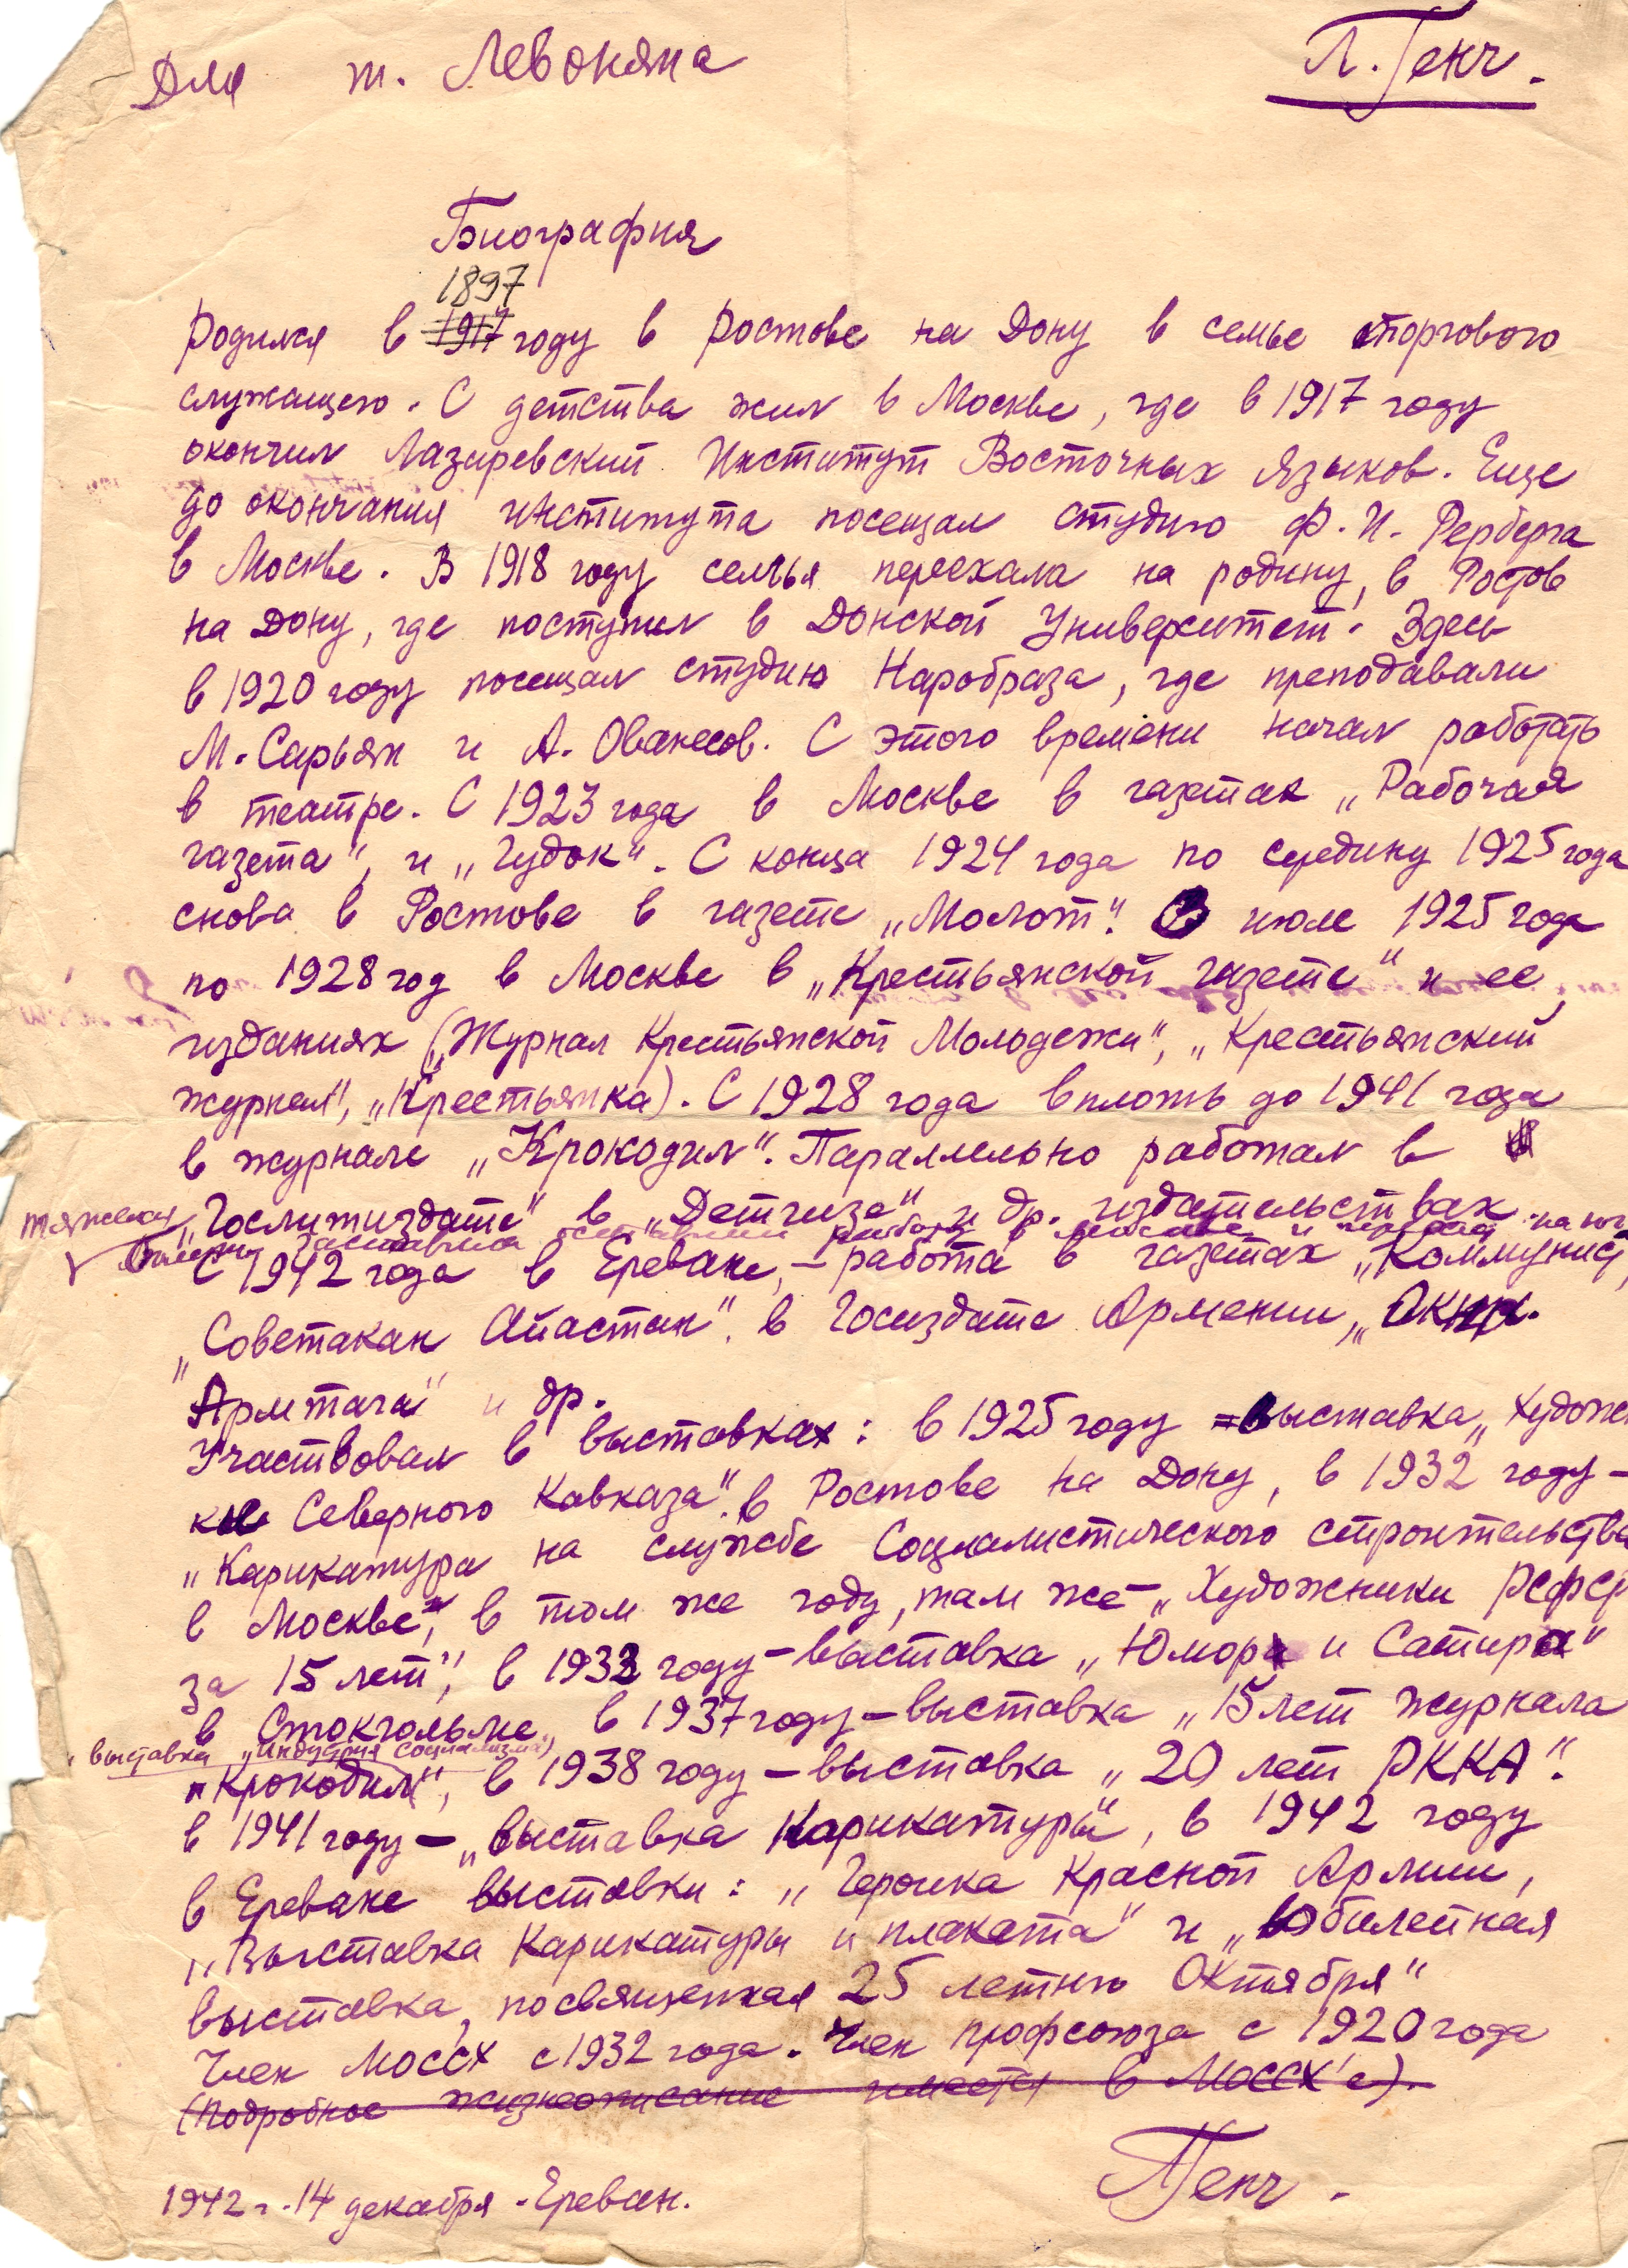 Для т. Левоняна
Л. Генч.
Биография
1897
Родился в 1917 году в Ростове на Дону в семье торгового
служащего. С детства жил в Москве, где в 1917 году
окончил Лазаревский Институт Восточных Языков. Еще
до окончания института посещал студию Ф. И. Рерберга
в Москве. В 1918 году семья переехала на родину, в Ростов
на Дону, где поступил в Донской Университет. Здесь
в 1920 году посещал студию Наробраза, где преподавали
М. Сарьян и А. Ованесов. С этого времени начал работать
в театре. С 1923 года в Москве в газетах „Рабочая
газета", и „Гудок". С конца 1924 года по середину 1925 года
снова в Ростове в газете „Молот". В июле 1925 года
по 1928 год в Москве в „Крестьянской газете" и ее
изданиях („Журнал Крестьянской Молодежи", „Крестьянский
журнал", „Крестьянка). С 1928 года вплоть до 1941 года
в журнале „Крокодил". Параллельно работал в
„Гослитиздате" в „Детгизе" и др. издательствах
тяжелая болезнь заставила оставить работу в Москве и
С 1942 года в Ереване, – работа в газетах „Коммунист,
„Советакан Айастан", в Госиздате Армении, „Окна
Армтага" и др.
Участвовал в выставках: в 1925 году – выставка „Худож
ки Северного Кавказа". в Ростове на Дону, в 1932 году –
„Карикатура на службе Социалистического строительства
в Москве", в том же году, там же – „Художники РСФСР
за 15 лет", в 1933 году – выставка „Юмора и Сатиры"
в Стокгольме, в 1937 году – выставка „15 лет журнала
выставка „Индустрия социализма")
„Крокодил", в 1938 году – выставка „20 лет РККА".
в 1941 году – „выставка Карикатуры", в 1942 году
в Ереване выставки: „Героика Красной Армии,
„Выставка Карикатуры и плаката" и „Юбилейная
выставка, посвященная 25 летию Октября"
Член МОССХ с 1932 года. Член профсоюза с 1920 года
(Подробное жизнеописание имеется в МОССХ'е).
Генч.
1942 г. 14 декабря. Ереван.